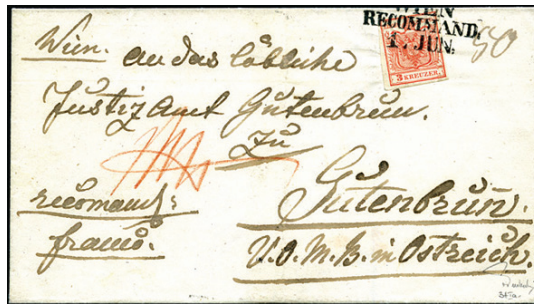 WIEN
RECOMMAND.
1. JUN.
3 KREUZER.
Wien. An das löbliche
Justizamt Gutenbrun.
zu
Gutenbrun.
recomand:
franco.
V.O.M.B. in Ostreich.